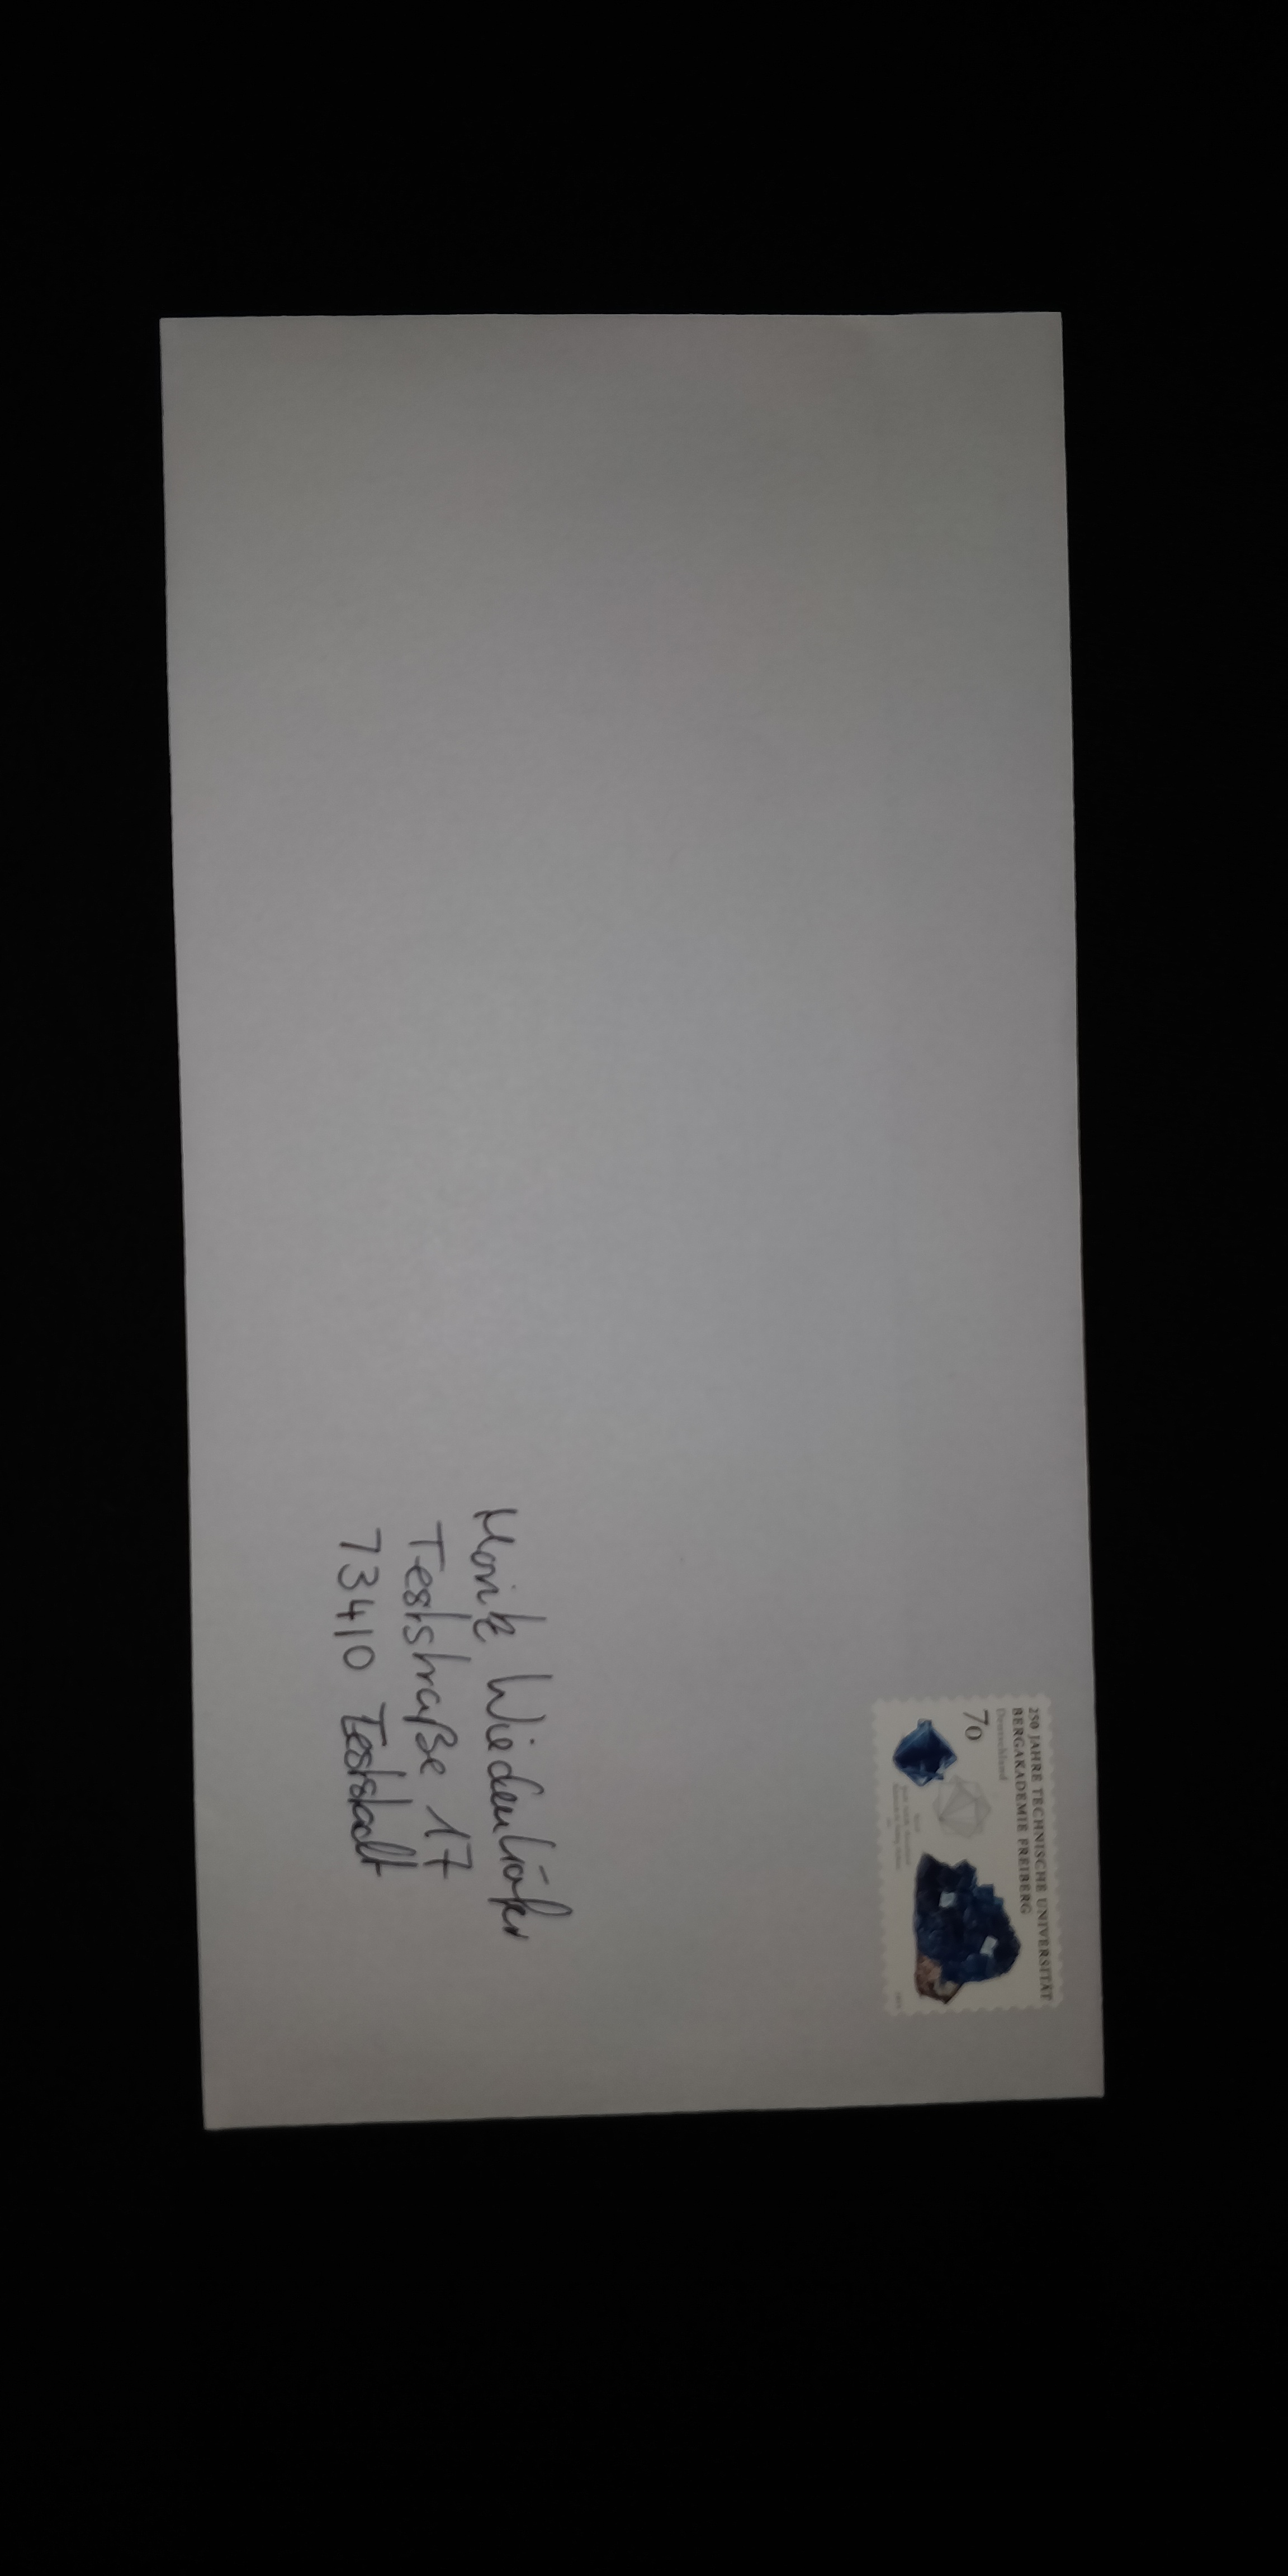 250 JAHRE TECHNISCHE UNIVERSITÄT
BERGAKADEMIE FREIBERG
Deutschland
70
Moritz
Teststraße 17
73410 Teststadt